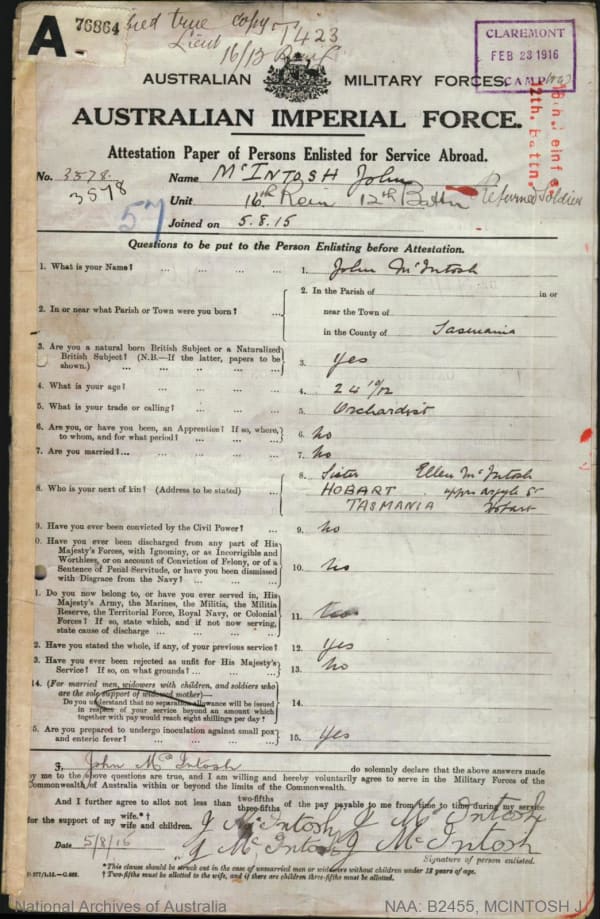 A
76864
true copy T423
Lieut
16/12 Reinf
CLAREMONT
FEB 23 1916
CAMP
16th. Reinf
12th. Battn.
AUSTRALIAN MILITARY FORCES.
AUSTRALIAN IMPERIAL FORCE.
Attestation Paper of Persons Enlisted for Service Abroad.
No. 3578 Name McINTOSH John
3578
Unit 16th Rein 12th Battn Returned Soldier
57
Joined on 5.8.15
Questions to be put to the Person Enlisting before Attestation.
1. What is your Name? ... ... ... ... 1. John McIntosh
2. In or near what Parish or Town were you born? ... 2. In the Parish of in or
near the Town of
in the County of Tasmania
3. Are you a natural born British Subject or a Naturalized
British Subject? (N.B.—If the latter, papers to be
shown.) ... ... ... ... 3. Yes
4. What is your age? ... ... ... ... 4. 24 10/12
5. What is your trade or calling? ... ... ... 5. Orchardist
6. Are you, or have you been, an Apprentice? If so, where,
to whom, and for what period? ... ... ... 6. No
7. Are you married?... ... ... ... ... 7. No
8. Who is your next of kin? (Address to be stated) ... 8. Sister Ellen McIntosh
HOBART upper Argyle St
TASMANIA Hobart
9. Have you ever been convicted by the Civil Power? ... 9. No
0. Have you ever been discharged from any part of His
Majesty's Forces, with Ignominy, or as Incorrigible and
Worthless, or on account of Conviction of Felony, or of a
Sentence of Penal Servitude, or have you been dismissed
with Disgrace from the Navy? ... ... ... 10. No
1. Do you now belong to, or have you ever served in, His
Majesty's Army, the Marines, the Militia, the Militia
Reserve, the Territorial Force, Royal Navy, or Colonial
Forces? If so, state which, and if not now serving,
state cause of discharge ... ... ... 11.
2. Have you stated the whole, if any, of your previous service? 12. Yes
3. Have you ever been rejected as unfit for His Majesty's
Service? If so, on what grounds? ... ... 13. No
14. (For married men, widowers with children, and soldiers who
are the sole support of widowed mother)—
Do you understand that no separation allowance will be issued
in respect of your service beyond an amount which
together with pay would reach eight shillings per day? 14.
5. Are you prepared to undergo inoculation against small pox
and enteric fever? ... ... ... ... 15. Yes
I, John McIntosh do solemnly declare that the above answers made
by me to the above questions are true, and I am willing and hereby voluntarily agree to serve in the Military Forces of the
Commonwealth of Australia within or beyond the limits of the Commonwealth.
And I further agree to allot not less than two-fifths three-fifths of the pay payable to me from time to time during my service
for the support of my wife.*† wife and children. J McIntosh J McIntosh
Date 5/8/15 J McIntosh J McIntosh
Signature of person enlisted.
*This clause should be struck out in the case of unmarried men or widowers without children under 18 years of age.
† Two-fifths must be allotted to the wife, and if there are children three-fifths must be allotted.
National Archives of Australia NAA: B2455, MCINTOSH J